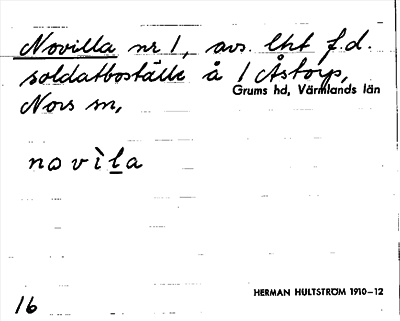 Novilla nr 1, avs. lht f.d.
soldatboställe å 1 Åstorp,
Grums hd, Värmlands län
Nors sn,
novìla
HERMAN HULTSTRÖM 1910–12
16